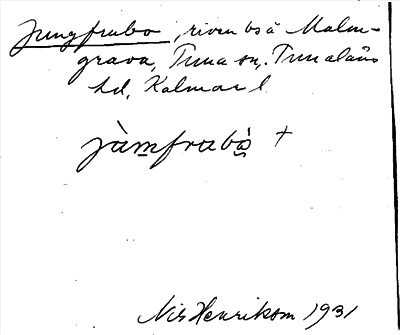 Jungfrubo, riven bs å Malm-
grava, Tuna sn. Tunaläns
hd, Kalmar l
jàmfrubó̀ +
Nils Henrikson 1931